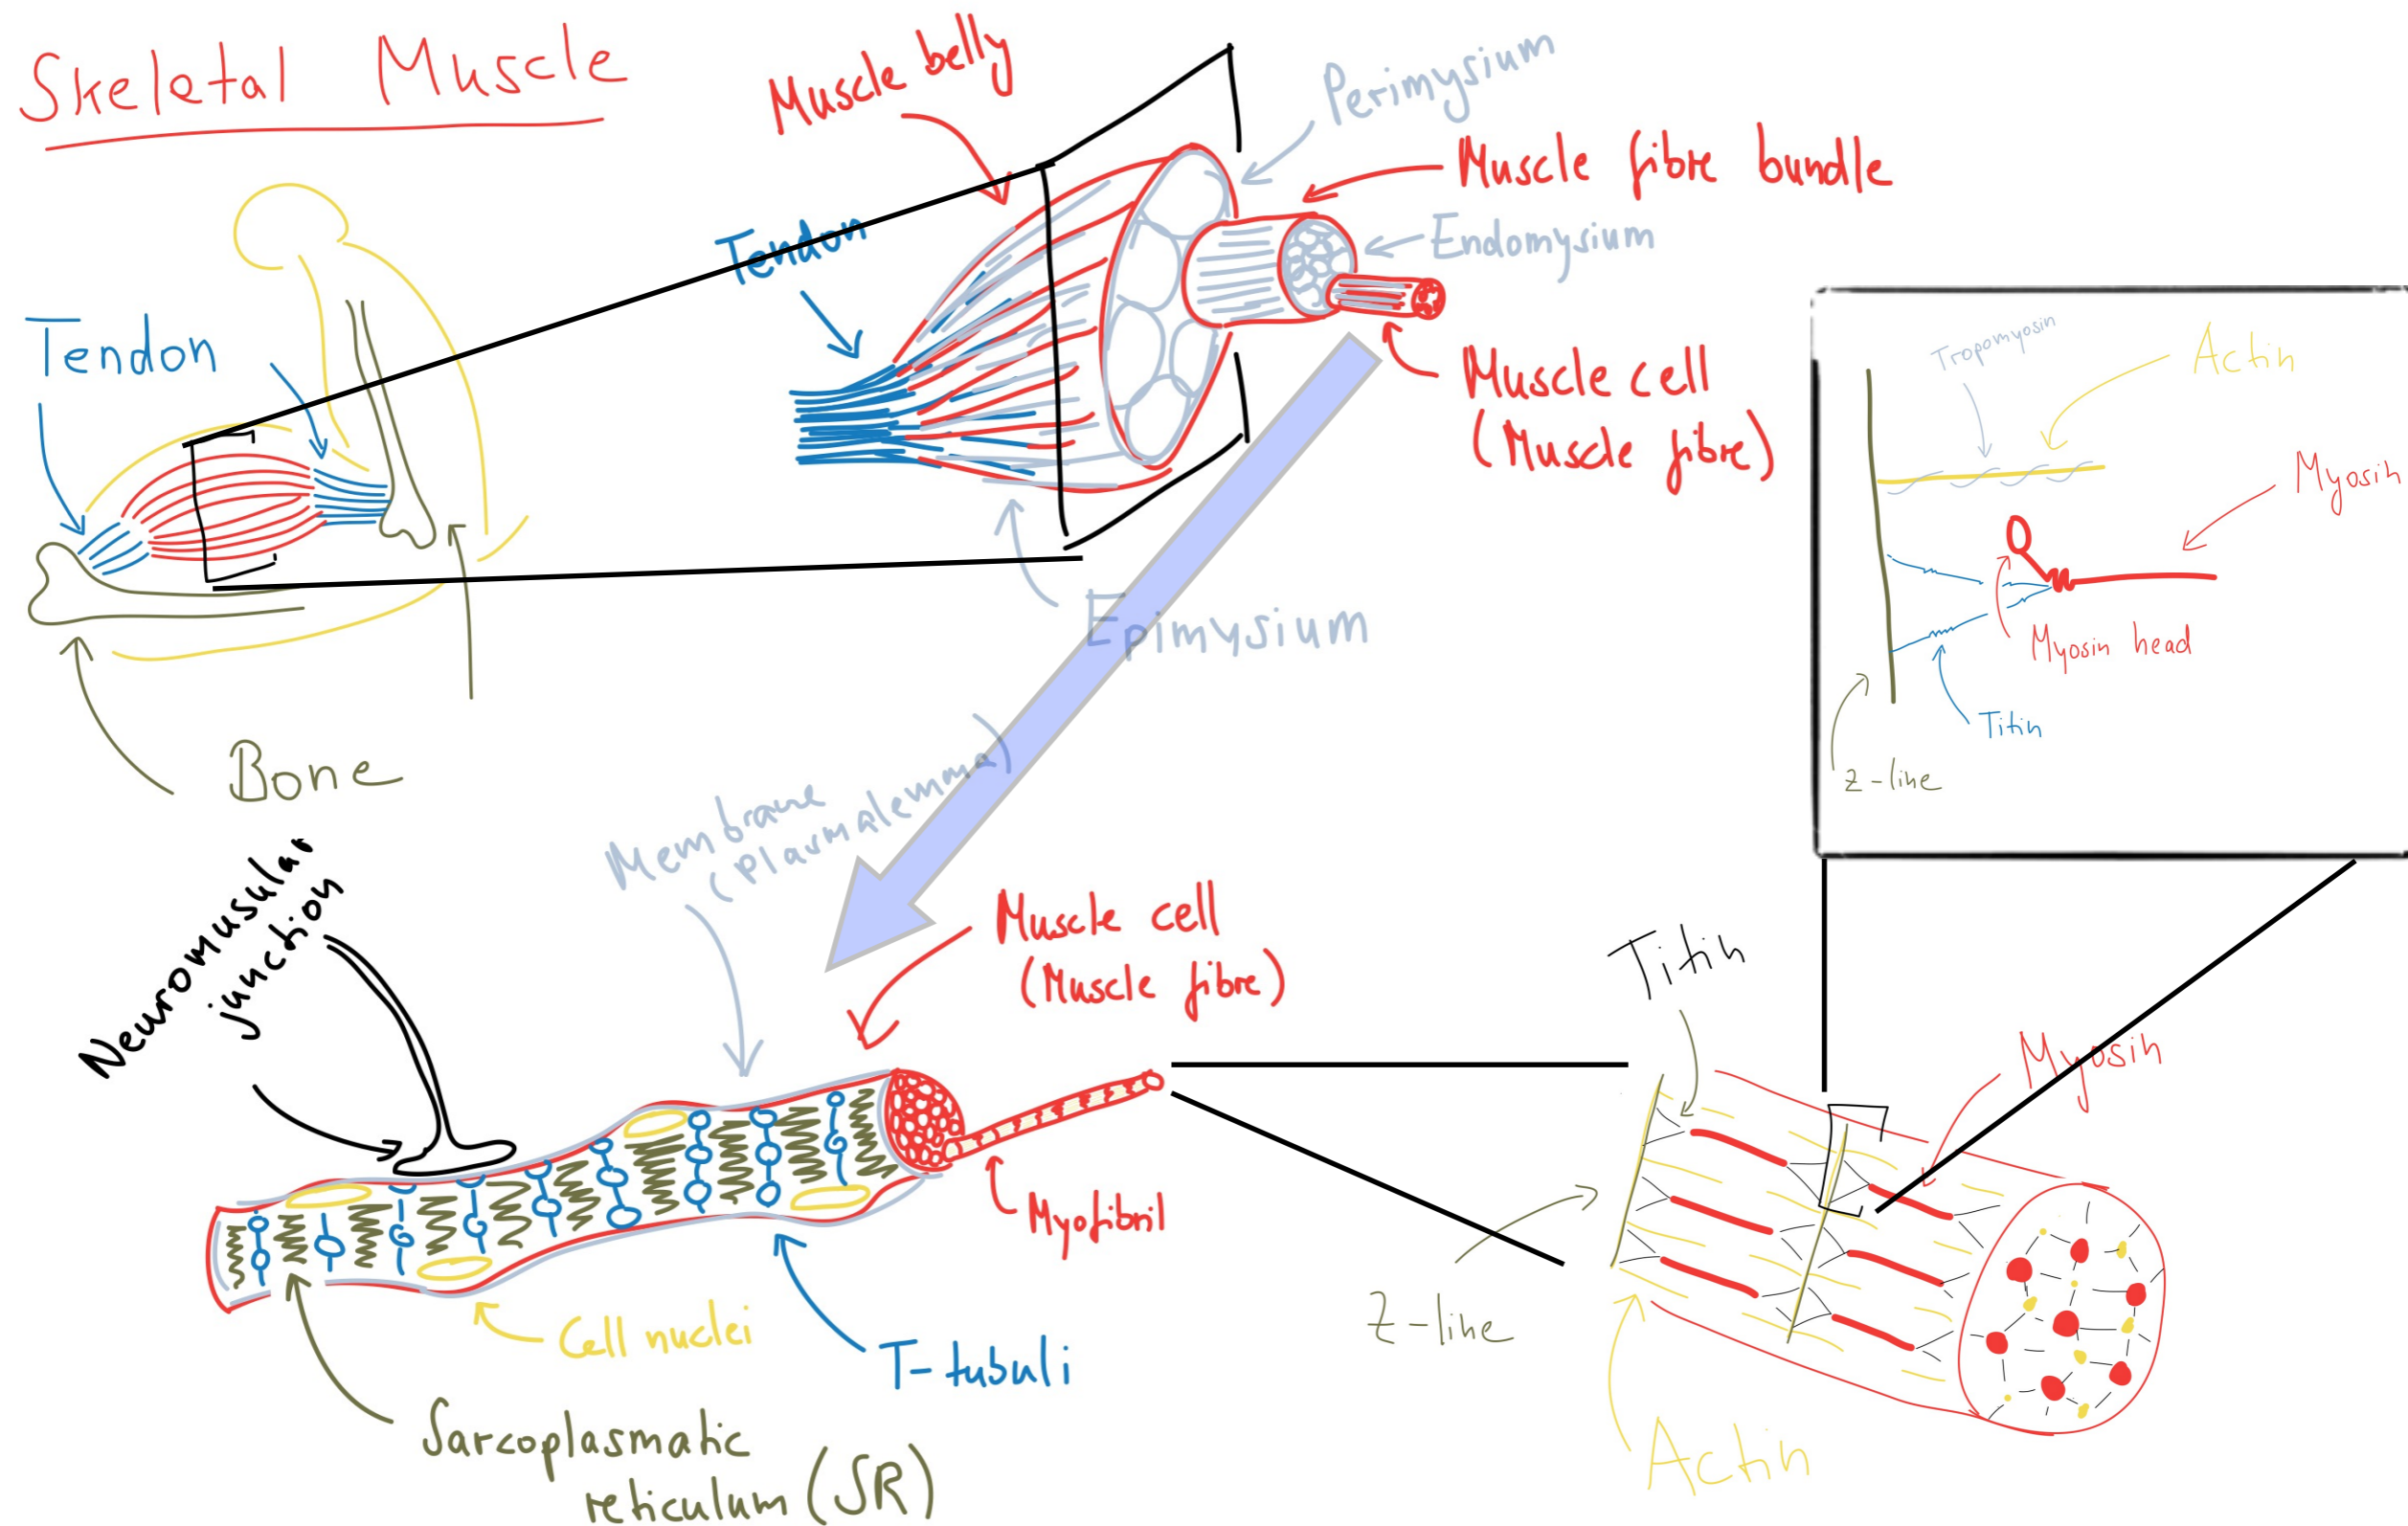 Skeletal Muscle
Muscle belly
Perimysium
Muscle fibre bundle
Endomysium
Tendon
Muscle cell
(Muscle fibre)
Tendon
Epimysium
Bone
Tropomyosin
Actin
Myosin
Myosin head
Titin
Z-line
Membrane
(plasmalemma)
Neuromusular
junction
Muscle cell
(Muscle fibre)
Myofibril
Cell nuclei
T-tubuli
Sarcoplasmatic
reticulum (SR)
Titin
Myosin
Z-line
Actin